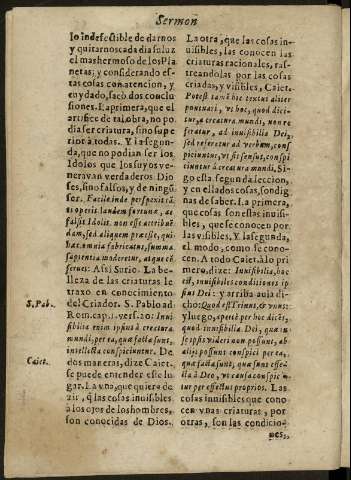 Sermon
lo indefectible de darnos
y quitarnos cada dia su luz
el mas hermoso de los Pla
netas; y considerando es-
tas cosas con atencion, y
cuydado, sacò dos conclu
siones. La primera, que el
artifice de tal obra, no po
dia ser criatura, sino supe
rior à todas. Y la segun-
da, que no podian ser los
Idolos que los suyos ve-
neravan verdaderos Dio
ses, sino falsos, y de ningũ
ser. Facile inde perspexit tã
ti operis laudem fortunæ, ac
falsis Idolis non esse attribuẽ
dam, sed aliquem præesse, qui
hæc omnia fabricatus, summa
sapientia moderetur, atque cõ
servet: Assi Surio. La be-
lleza de las criaturas le
traxo en conocimiento
del Criador. S. Pablo ad
Rom. cap. 1. vers. 20: Invi
sibilia enim ipsius à creatura
mundi, per ea, quæ facta sunt,
intellecta conspiciuntur. De
dos maneras, dize Caiet.
se puede entender este lu-
gar. La vna, que quiere de
zir, q̃ las cosas invisibles
à los ojos de los hombres,
son conocidas de Dios.
S. Pab.
Caiet.
La otra, que las cosas in-
visibles, las conocen las
criaturas racionales, ras-
treandolas por las cosas
criadas, y visibles, Caiet.
Potest tamẽ hic textus aliter
pontuari, vt hoc, quod dici-
tur, à creatura mundi, non re
feratur, ad invisibilia Dei,
sed referatur ad verbum, cons
piciuntur, vt sit sensus, conspi
ciuntur à creatura mundi. Si
go esta segunda leccion,
y en ella dos cosas, son dig
nas de saber. La primera,
que cosas son estas invisi-
bles, que se conocen por
las visibles. Y la segunda,
el modo, como se cono-
cen. A todo Caiet. à lo pri
mero, dize: Invisibilia, hoc
est, invisibiles conditiones ip
sius Dei: y arriba avia di-
cho: Quod est Trinus, & vnus:
y luego, apertè per hoc dicẽs,
quod invisibilia Dei, quæ in
se ipsis videri non possunt, ab
alijs possunt conspici per ea,
quæ facta sunt, quæ sunt effec
ta à Deo, vt causa conspicitur
per effectus proprios. Las
cosas invisibles que cono
cen vnas criaturas, por
otras, son las condicio-
nes,